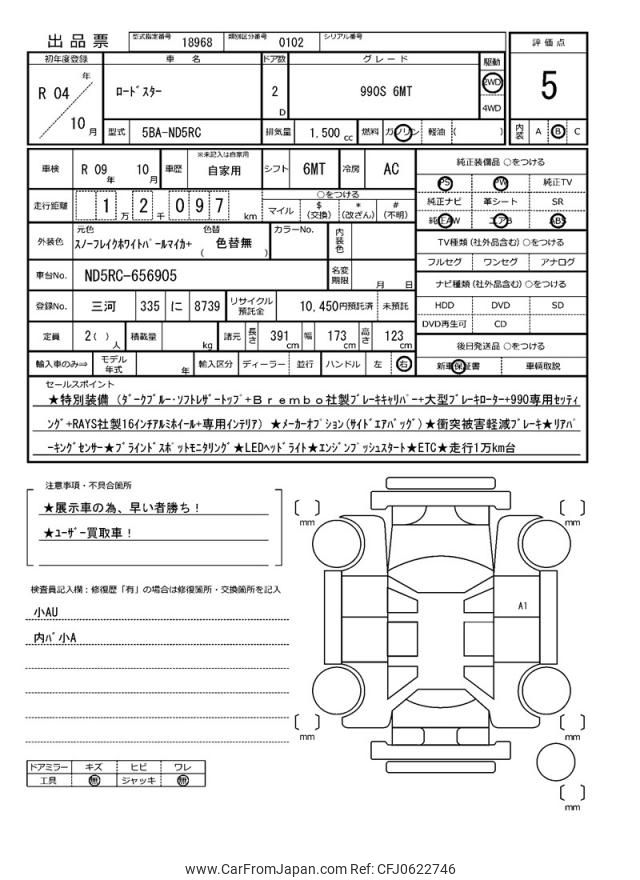 出品票
型式指定番号 18968 類別区分番号 0102 シリアル番号
評価点
初年度登録 車名 ドア数 グレード 駆動
R 04 年 10 月
ロードスター 2 D 990S 6MT 2WD 4WD
5
型式 5BA-ND5RC 排気量 1.500 cc 燃料 ガソリン 軽油 ( )
内装 A B C
車検 R 09 年 10 月 車歴 ※未記入は自家用 自家用 シフト 6MT 冷房 AC
純正装備品 ○をつける
PS PW 純正TV
走行距離 1 万 2 千 0 9 7 km
○をつける
マイル $ (交換) * (改ざん) # (不明)
純正ナビ 革シート SR
純正AW エアB ABS
外装色 元色 スノーフレイクホワイトパールマイカ+ 色替 ( 色替無 ) カラーNo. 内装色
TV種類 (社外品含む) ○をつける
フルセグ ワンセグ アナログ
車台No. ND5RC-656905 名変期限 月 日
ナビ種類 (社外品含む) ○をつける
登録No. 三河 335 に 8739 リサイクル預託金 10,450円預託済 未預託
HDD DVD SD
DVD再生可 CD
定員 2( ) 人 積載量 kg 諸元 長さ 391 cm 幅 173 cm 高さ 123 cm
後日発送品 ○をつける
輸入車のみ⇨ モデル年式 年 輸入区分 ディーラー 並行 ハンドル 左 右
新車保証書 車輌取説
セールスポイント
★特別装備 (ダークブルー・ソフトレザートップ+Brembo社製ブレーキキャリパー+大型ブレーキローター+990専用セッティ
ング+RAYS社製16インチアルミホイール+専用インテリア) ★メーカーオプション(サイドエアバッグ)★衝突被害軽減ブレーキ★リアパ
ーキングセンサー★ブラインドスポットモニタリング★LEDヘッドライト★エンジンプッシュスタート★ETC★走行1万km台
注意事項・不具合箇所
★展示車の為、早い者勝ち!
★ユーザー買取車!
検査員記入欄:修復歴「有」の場合は修復箇所・交換箇所を記入
小AU
内バ小A
mm
mm
A1
mm
mm
mm
ドアミラー キズ ヒビ ワレ
工具 無 ジャッキ 無
www.CarFromJapan.com Ref: CFJ0622746